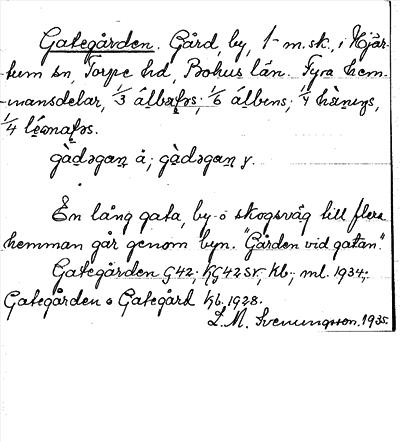 Gategården. Gård, by, 1 m. sk., i Hjär-
tum sn, Torpe hd, Bohus län. Fyra hem-
mansdelar, 1/3 álbafəs; 1/6 álbins; 1/4 hànsəs,
1/4 léənafəs.
gàdəgaṇ å; gàdəgaṇ y.
En lång gata, by- o skogsväg till flera
hemman går genom byn. "Gården vid gatan."
Gategården G42; KG42Sv, Kb; ml. 1934;
Gategården o Gategård Kb, 1928.
L. M. Svenungsson. 1935.